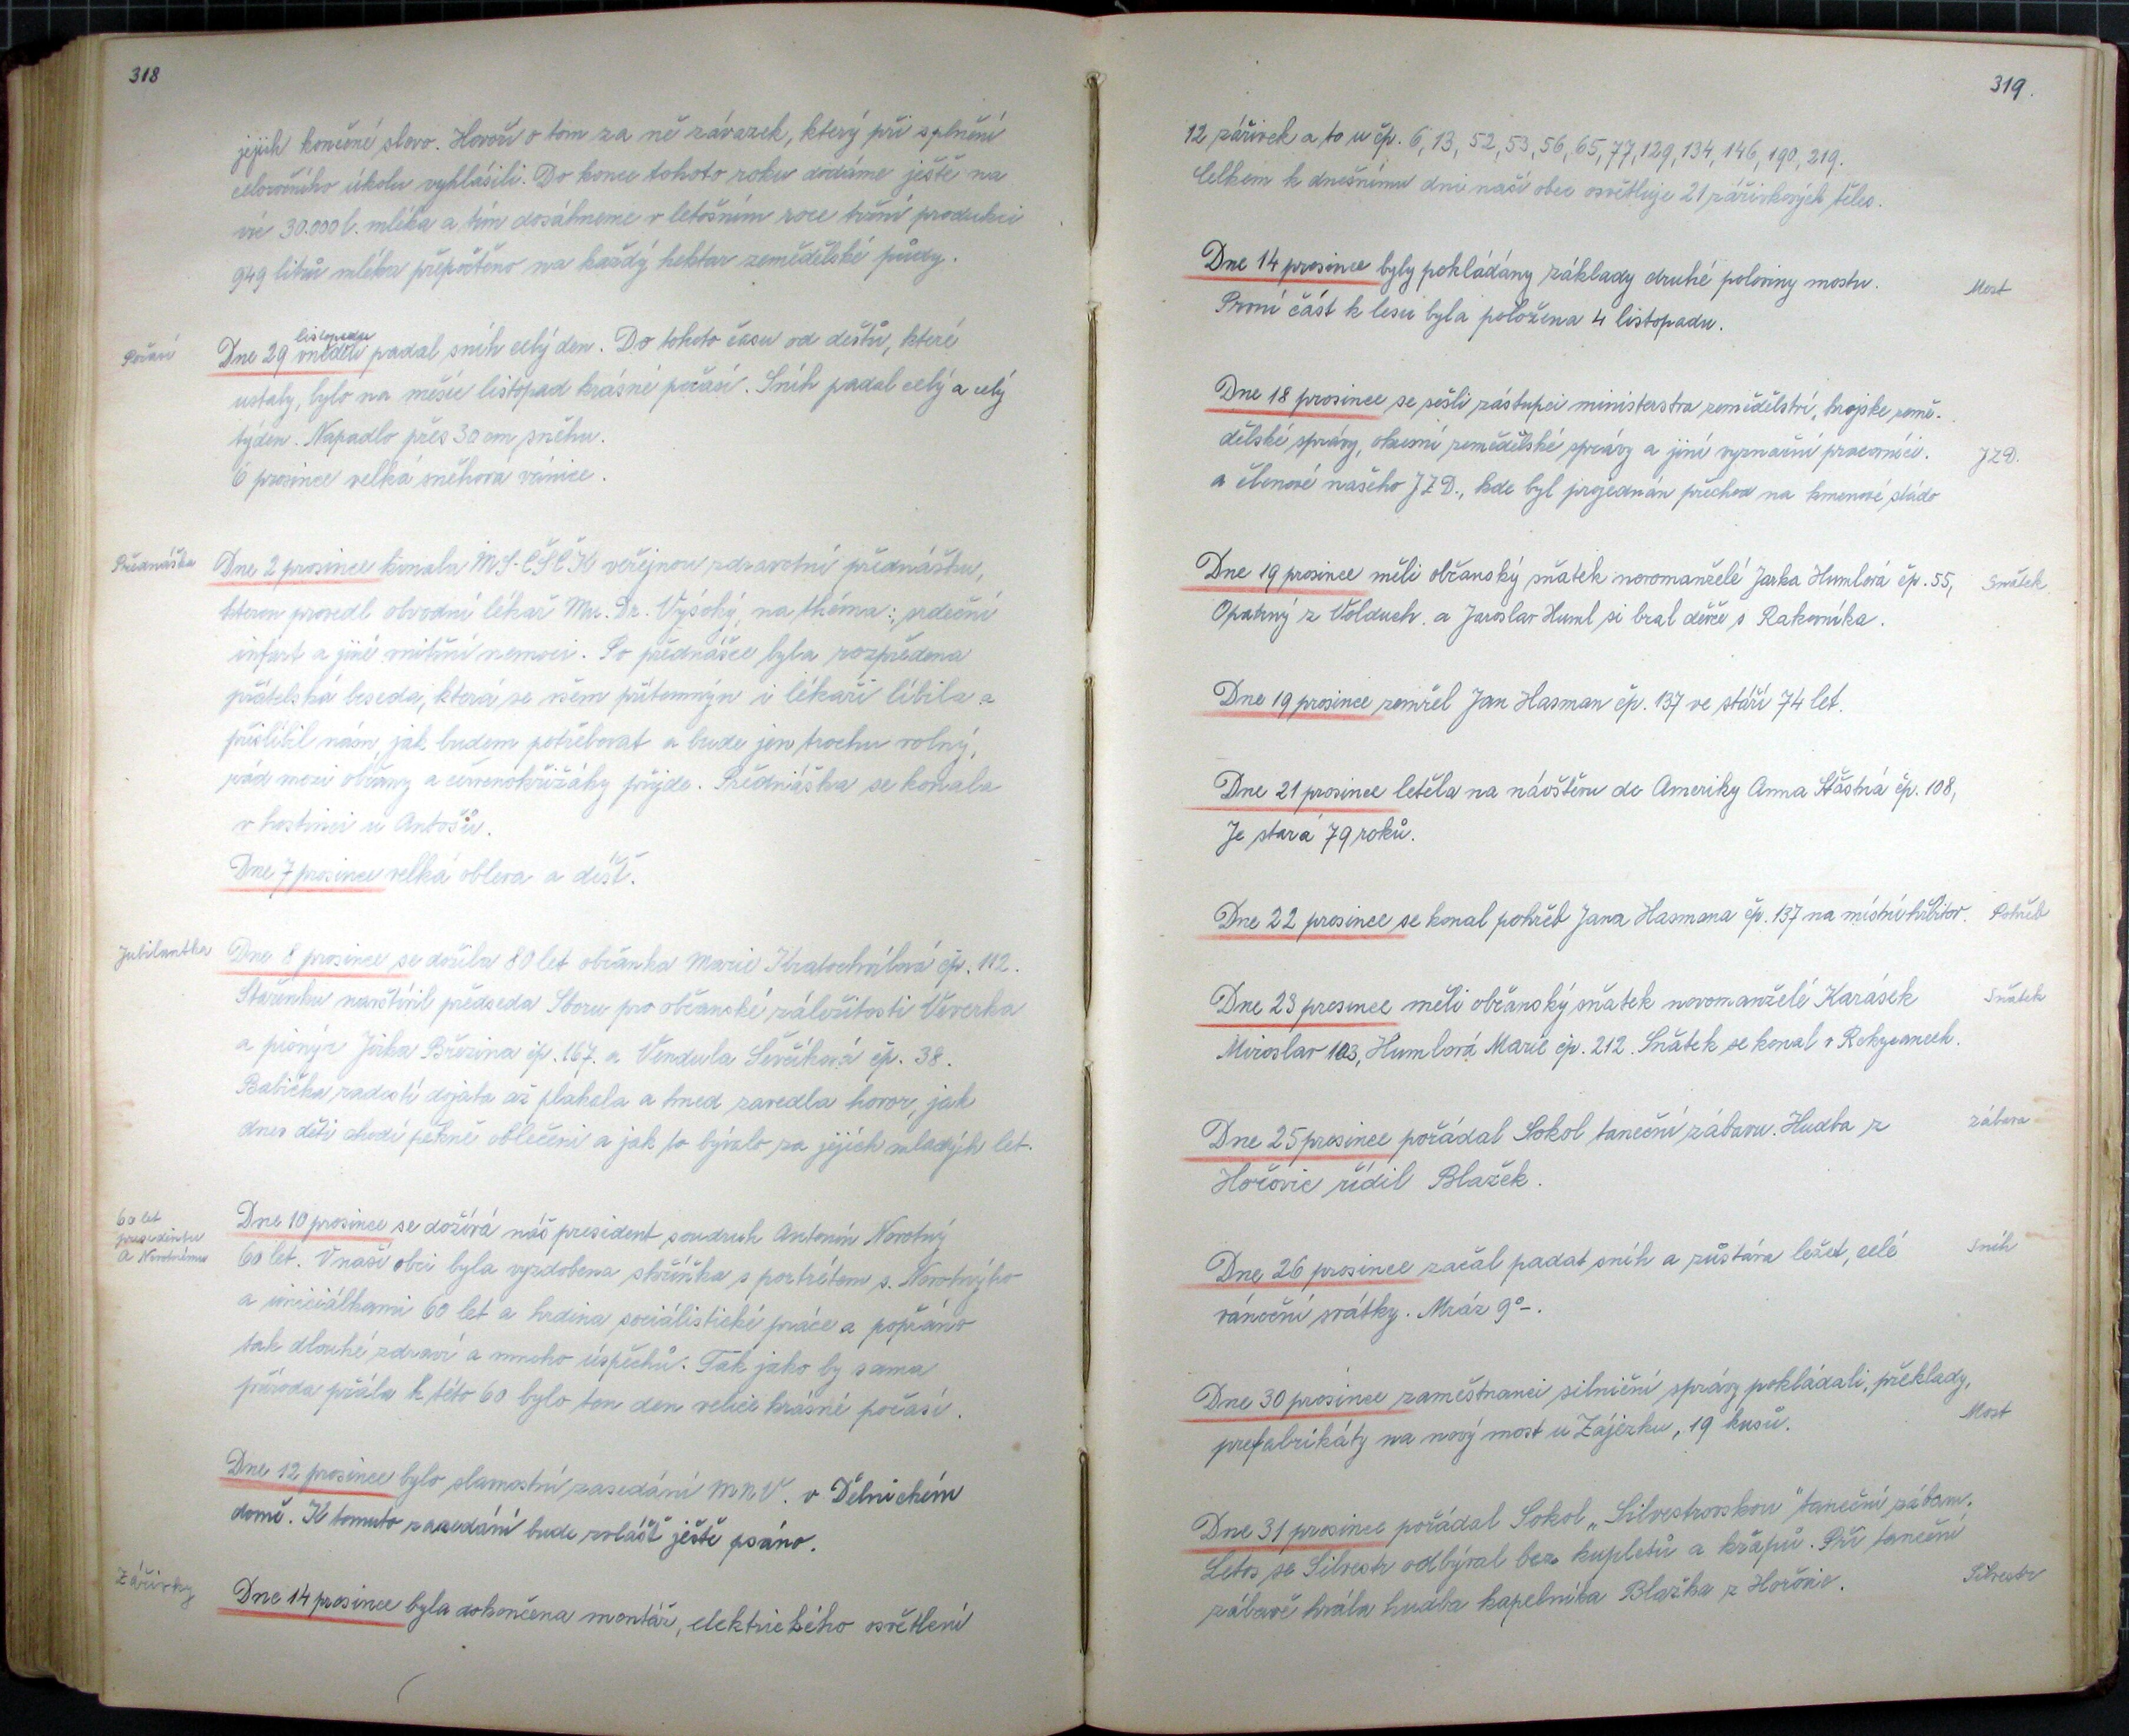 318
jejich konečné slovo. Hovoří o tom za ně závazek, který při splnění
celoročního úkolu vyhlásili. Do konce tohoto roku dodáme ještě na
víc 30.000 l. mléka a tím dosáhneme v letošním roce tržní produkci
949 litrů mléka přepočteno na každý hektar zemědělské půdy.
Počasí
listopadu
Dne 29 vneděli padal sníh celý den. Do tohoto času od dešťů, které
ustaly, bylo na měsíc listopad krásné počasí. Sníh padal celý a celý
týden. Napadlo přes 30 cm sněhu.
6 prosince velká sněhova vánice.
Přednáška
Dne 2 prosince konala MS-ČSČK veřejnou zdravotní přednášku,
kterou provedl obvodní lékař Mu. Dr. Vysoký, na thema: srdeční
infart a jiné vnitřní nemoci. Po přednášce byla rozpředena
přátelská beseda, která se všem přítomným i lékaři líbila a
přislíbil nám, jak budem potřebovat a bude jen trochu volný,
rád mezi občany a červenokřižáky přijde. Přednáška se konala
v hostinci u Antošů.
Dne 7 prosince velká obleva a déšť.
Jubilantka
Dne 8 prosince se dožila 80 let občanka Marie Kratochvílová čp. 112.
Stařenku navštívil předseda Sboru pro občanské záležitosti Veverka
a pionýr Jirka Březina čp. 167. a Vendula Ševčíková čp. 38.
Babička radostí dojata až plakala a hned zavedla hovor, jak
dnes děti chodí pěkně oblečeni a jak to bývalo za jejích mladých let.
60 let
presidentu
A Novotnému
Dne 10 prosince se dožívá náš president soudruh Antonín Novotný
60 let. V naší obci byla vyzdobena skříňka s portrétem s. Novotného
a iniciálkami 60 let a hrdina sociálistické práce a popřáno
tak dlouhé zdraví a mnoho úspěchů. Tak jako by sama
příroda přála k této 60 bylo ten den velice krásné počasí.
Dne 12 prosince bylo slavnostní zasedání MNV. v Dělnickém
domě. K tomuto zasedání bude zvlášť ještě psáno.
Zářivky
Dne 14 prosince byla dokončena montáž, elektrického osvětlení
319.
12 zářivek a to u čp. 6, 13, 52, 53, 56, 65, 77, 129, 134, 146, 190, 219.
Celkem k dnešnímu dni naší obec osvětluje 21 zářivkových těles.
Dne 14 prosince byly pokládány základy druhé poloviny mostu.
Most
První část k lesu byla položena 4 listopadu.
Dne 18 prosince se sešli zástupci ministerstva zemědělství, krajske země-
dělské správy, okresní zemědělské správy a jiní vyznační pracovníci.
JZD.
a členové našeho JZD., kde byl projednán přechod na kmenové stádo
Dne 19 prosince měli občanský sňatek novomanželé Jarka Humlová čp. 55,
Sňatek
Opatrný z Volduch. a Jaroslav Huml si bral děvče s Rakovníka.
Dne 19 prosince zemřel Jan Hasman čp. 137 ve stáří 74 let.
Dne 21 prosince letěla na návštěvu do Ameriky Anna Šťastná čp. 108,
Je stará 79 roků.
Dne 22 prosince se konal pohřeb Jana Hasmana čp. 137 na místní hřbitov.
Pohřeb
Dne 23 prosince měli občanský sňatek novomanželé Karásek
Sňatek
Miroslav 103, Humlová Marie čp. 212. Sňatek se konal v Rokycanech.
Dne 25 prosince pořádal Sokol taneční zábavu. Hudba z
zábava
Hořovic řídil Blažek.
Dne 26 prosince začal padat sníh a zůstáva ležet, celé
Sníh
vánoční svátky. Mráz 9°-.
Dne 30 prosince zaměstnanci silniční správy pokládali, překlady,
Most
prefabrikáty na nový most u Zájezku, 19 kusů.
Dne 31 prosince pořádal Sokol „Silvestrovskou" taneční zábavu.
Letos se Silvestr odbýval bez kupletů a krápů. Při taneční
Silvestr
zábavě hrála hudba kapelníka Blažka z Hořovic.